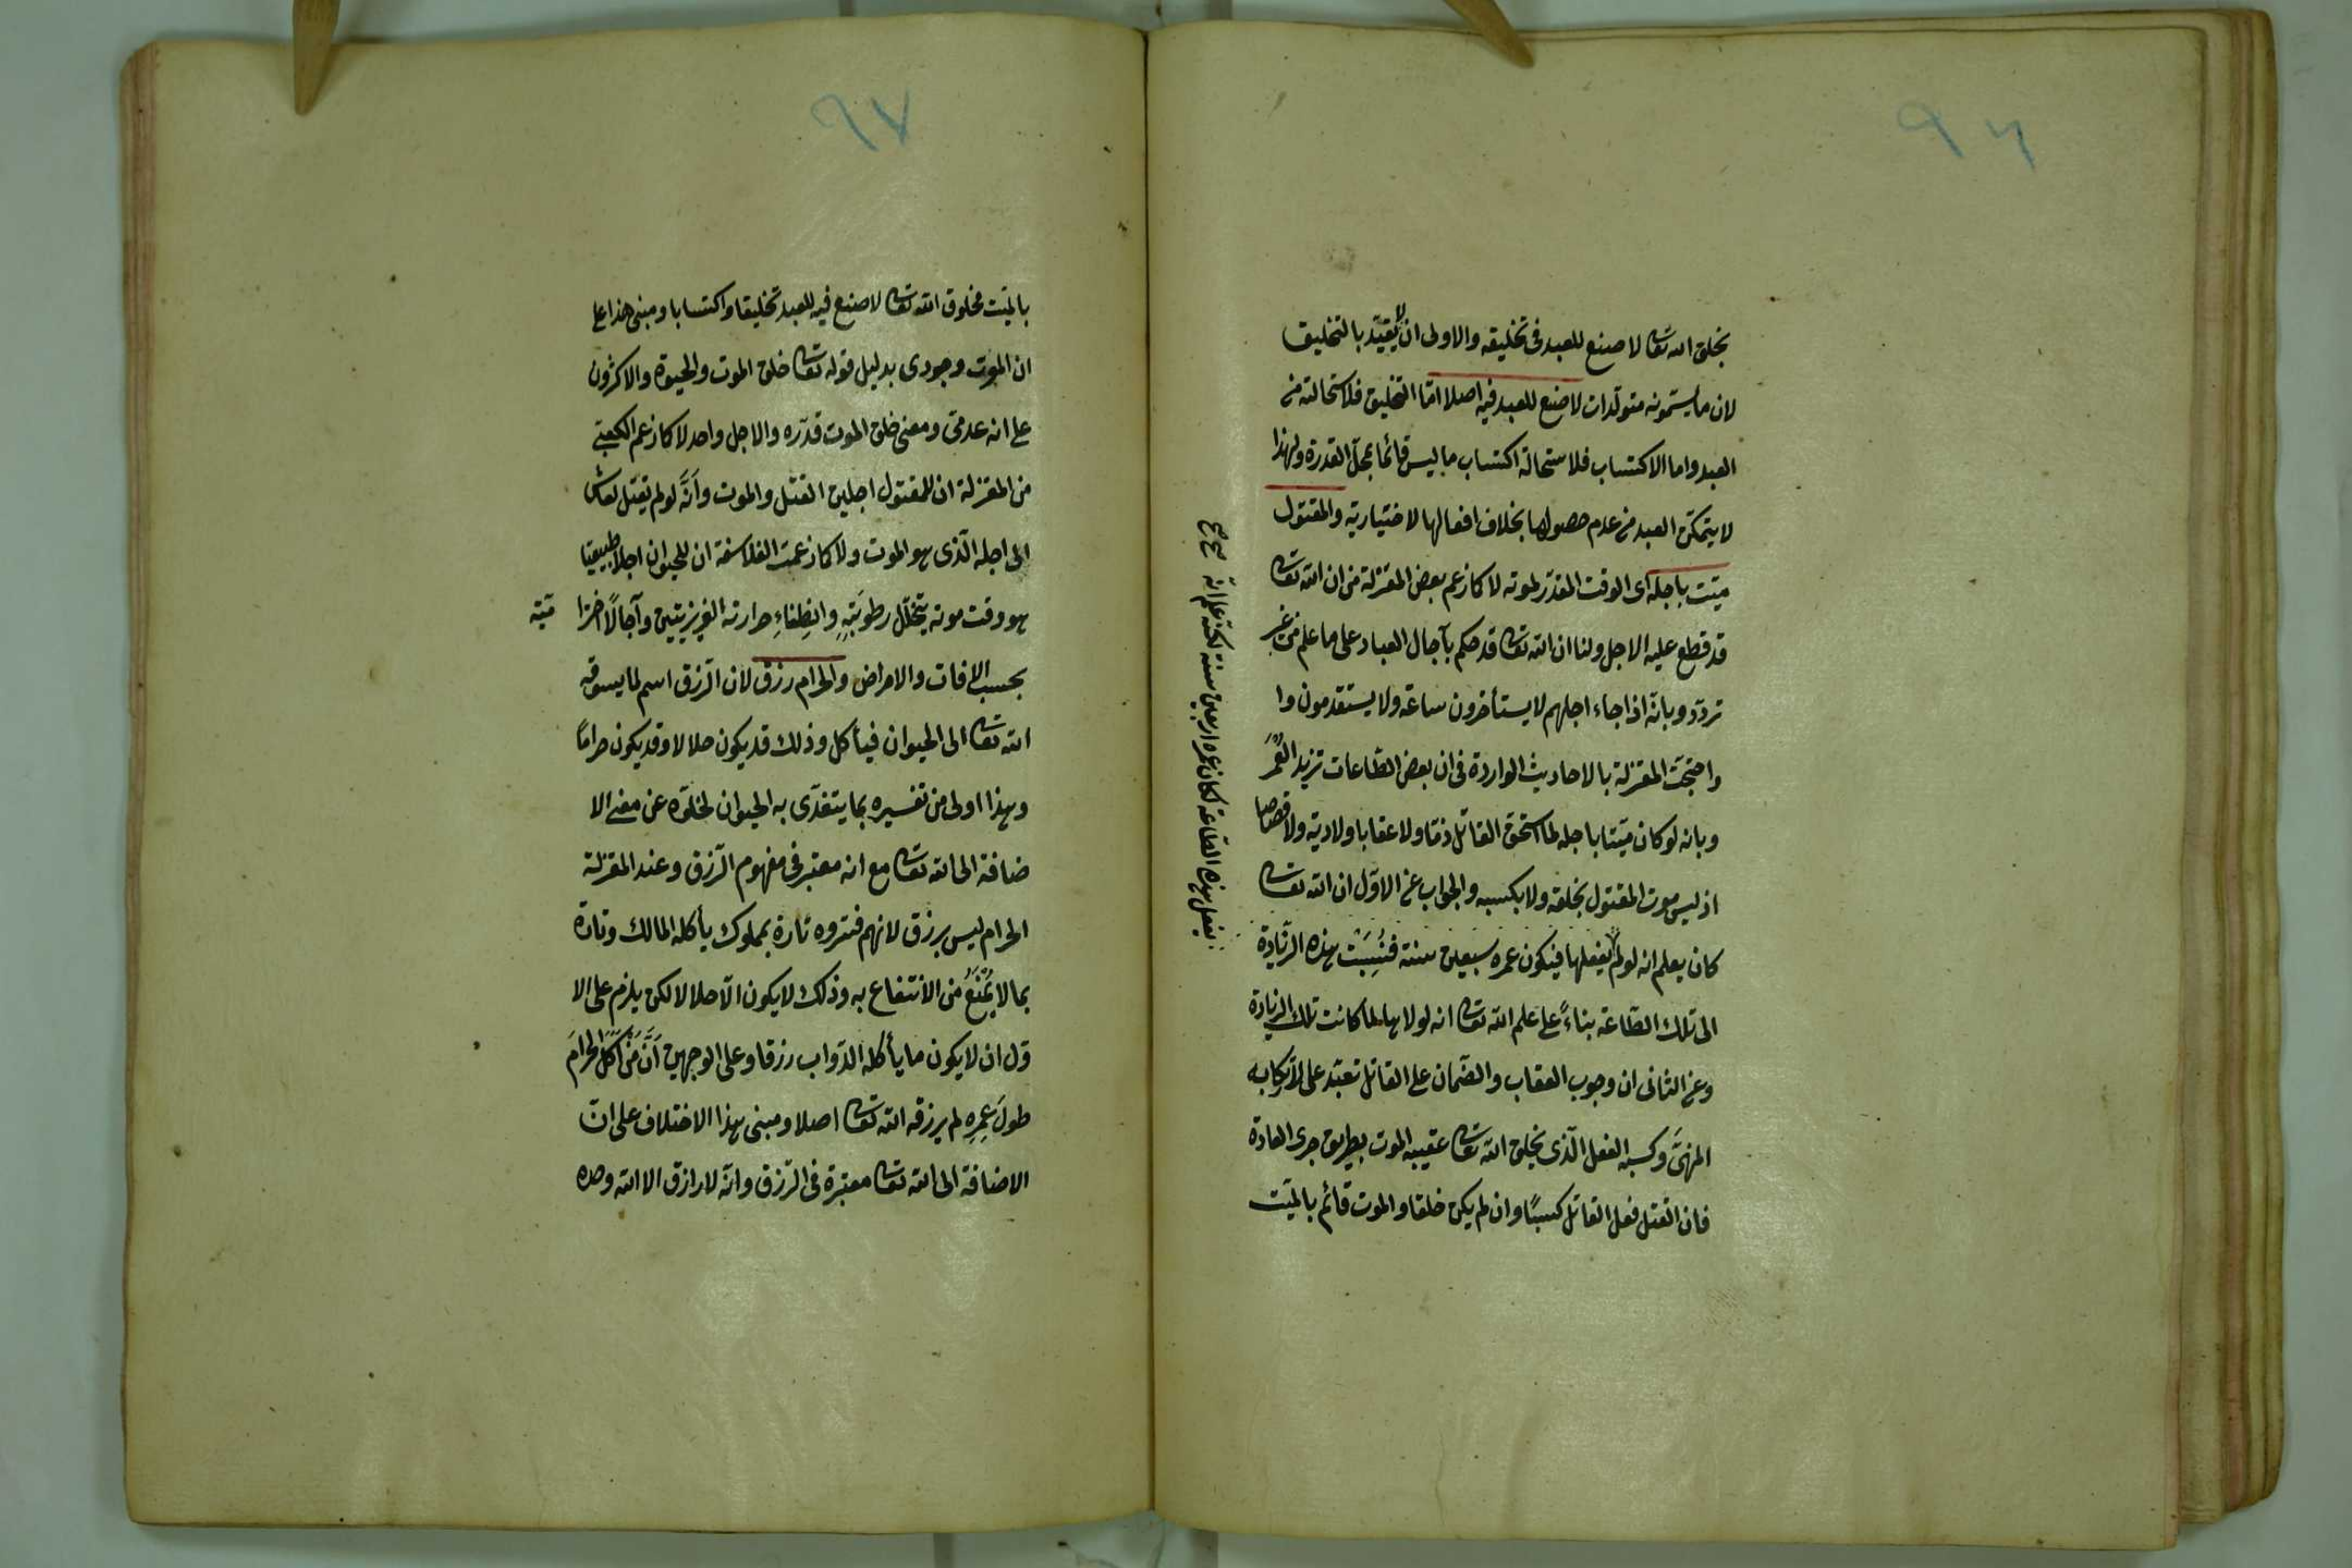 ٩٦
بخلق الله تعا لا صنع للعبد فى تخليقه والاولى ان لا يقيّد بالتخليق
لان ما يسمّونه متولّدات لا صنع للعبد فيه اصلا امّا التخليق فلاستحالته من
العبد واما الاكتساب فلاستحالة اكتساب ما ليس قائما بمحلّ القدرة ولهذا
لا يتمكن العبد من عدم حصولها بخلاف افعالها لاختيارية والمقتول
ميّت باجله اى الوقت المقدّر لموته لا كما زعم بعض المعتزلة من ان الله تعا
قد قطع عليه الاجل ولنا ان الله تعا قد حكم بآجال العباد على ما علم من غير
تردّد وبانه اذا جاء اجلهم لا يستأخرون ساعة ولا يستقدمون وا
واحتجّت المعتزلة بالاحاديث الواردة فى ان بعض الطّاعات تزيد العُمُرَ
وبانه لو كان ميّتا باجله لما استحقّ القاتل ذمّا ولا عقابا ولا دية ولا قصاصا
اذ ليس موت المقتول بخلقه ولا بكسبه والجواب عن الاوّل ان الله تعا
كان يعلم انه لو لم يفعلها فيكون عمره سبعين سنة فنُسِبَتْ هذه الزّيادة
الى تلك الطّاعة بناءً على علم الله تعا انه لولاها لما كانت تلك الزيادة
وعن الثانى ان وجوب العقاب والضّمان على القاتل تعبّد على لارتكابه
المنهىَّ وكسبه الفعل الّذى يخلق الله تعا عقيبه الموت بطريق جرى العادة
فان القتل فعل القاتل كسبًا وان لم يكن خلقا والموت قائم بالميّت
يفعل هذه الطّاعة لكان عمره اربعين سنة لكنّه علم انّه صح صح
٩٧
بالميّت مخلوق الله تعا لا صنع فيه للعبد تخليقا واكتسابا ومبنى هذا على
ان الموت وجودى بدليل قوله تعا خلق الموت والحيوة والاكثرون
على انه عدمىّ ومعنى خلق الموت قدّره والاجل واحد لا كما زعم الكعبىّ
من المعتزلة ان للمقتول اجلين القتل والموت وأنَّه لو لم يقتل لعاش
الى اجله الّذى هو الموت ولا كما زعمت الفلاسفة ان للحيوان اجلا طبيعيّا
هو وقت موته بتحلّل رطوبَتِهِ وانطِفاءِ حرارته الغريزيتين وآجالًا اخترا ميّة
بحسب الافات والامراض والحرام رزق لان الرّزق اسم لما يسوقه
الله تعا الى الحيوان فيأكل وذلك قد يكون حلالا وقد يكون حرامًا
وهذا اولى من تفسيره بما يتغذّى به الحيوان لخلوّه عن معنى الا
ضافة الى الله تعا مع انه معتبر فى مفهوم الرّزق وعند المعتزلة
الحرام ليس برزق لانهم فسّروه تارة بمملوك يأكله المالك وتارة
بما لا يُمْنَعُ من الانتفاع به وذلك لا يكون الّا حلالا لكن يلزم على الا
وّل ان لا يكون ما يأكله الدّواب رزقا وعلى الوجهين أنَّ مَنْ أكَلَ الحرامَ
طولَ عمرِهِ لم يرزقه الله تعا اصلا ومبنى هذا الاختلاف على انّ
الاضافة الى الله تعا معتبرة فى الرّزق وانّه لا رازق الا الله وحده